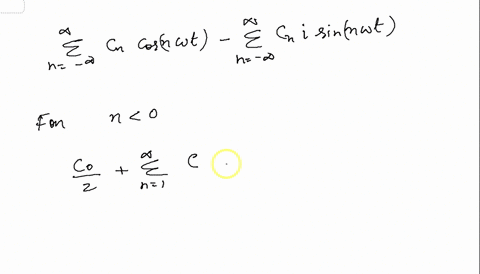 ∞ ∑ n=-∞ Cn cos(nωt) - ∞ ∑ n=-∞ Cn i sin(nωt)
For n < 0
C0/2 + ∞ ∑ n=1 C